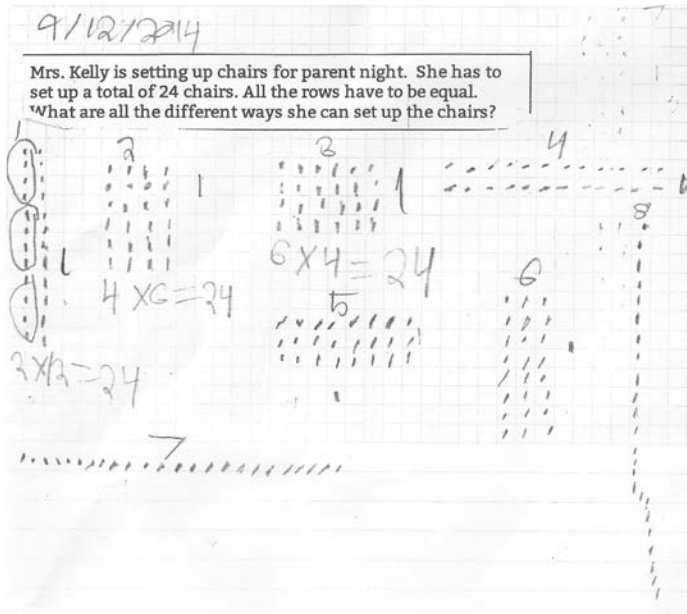 9/12/2014
Mrs. Kelly is setting up chairs for parent night. She has to
set up a total of 24 chairs. All the rows have to be equal.
What are all the different ways she can set up the chairs?
1
2
3
4
4 X 6 = 24
6 X 4 = 24
5
6
8
2 X 12 = 24
7